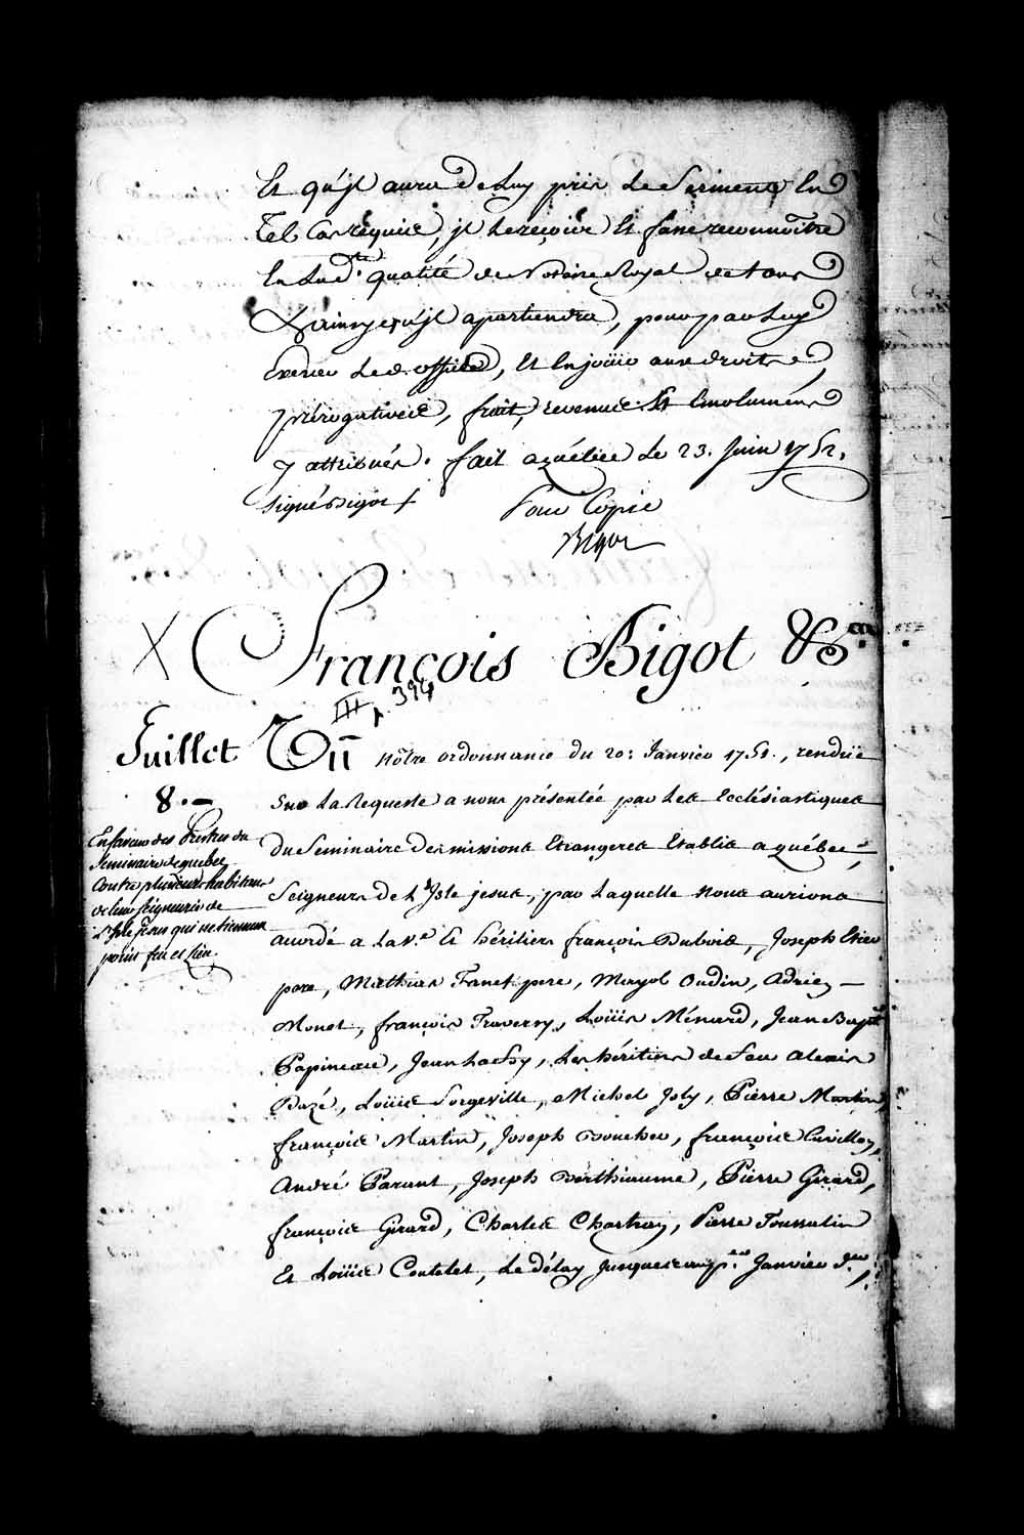 Et qu'jl aura de Luy pris Le Serment En
Tel Cas requis, jl Le reçoive Et fasse reconnoître
En Lad.te qualité de Notaire Royal de tous
Et ainsy qu'jl apartiendra, pour par Luy
Exercer Led. office, Et En joüir aux droits,
prérogatives, fruit, revenus Et Emoluméns
y attribués. fait a québec Le 23. Juin 1752.
Signé Bigot
Pour Copie
Bigot
François Bigot &c.
III p. 394
Juillet
8.
En faveur des Prestres du
Seminaire de quebec
Contre plusieurs habitans
de leur seigneurie de
L'Isle Jesus qui ne tiennent
point feu et Lieu.
Vu nôtre ordonnance du 20: Janvier 1751., rendüe
Sur La Requeste a nous présentée par Les Ecclésiastiques
Du Seminaire des missions Etrangeres Etablis a québec,
Seigneurs de L'Isle jesus, par Laquelle nous aurions
acordé a La v.e Et héritiers françois Dubois, Joseph
pere, Mathias pere, Mayol Oudin, Adrien
Monet, françois Traversy, Loüis Ménard, Jean Bapt.e
Papineau, Jean, Les héritiers de feu Alexis
Dazé, Loüis Forgeville, Michel Joly, Pierre Martin,
françois Martin, Joseph Boucher, françois Cuvillon,
André Parant, Joseph Berthiaume, Pierre Girard,
françois Girard, Charles Chartray, Pierre Toussatin
Et Loüis Coutelet, Le délay jusques au p.er Janvier d.er,